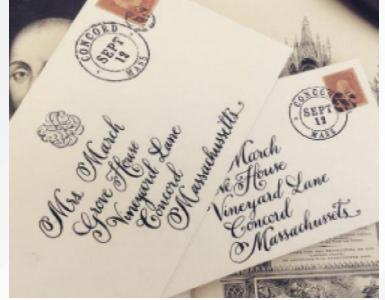 CONCORD
SEPT
12
MASS
Mrs. March
Grove House
Vineyard Lane
Concord
Massachusetts
CONCOR
SEPT
12
MASS
March
ve House
Vineyard Lane
Concord
Massachussets